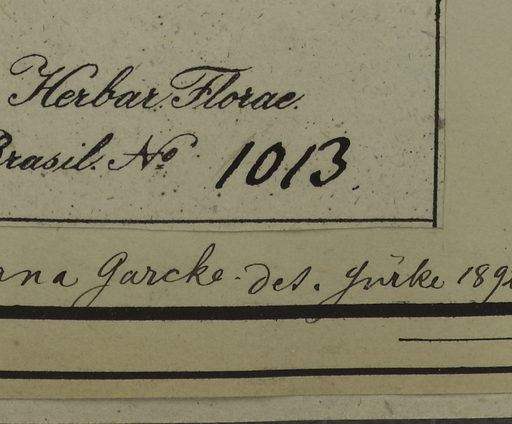 Herbar. Florae.
Brasil. No 1013.
Garcke. det. Gürke